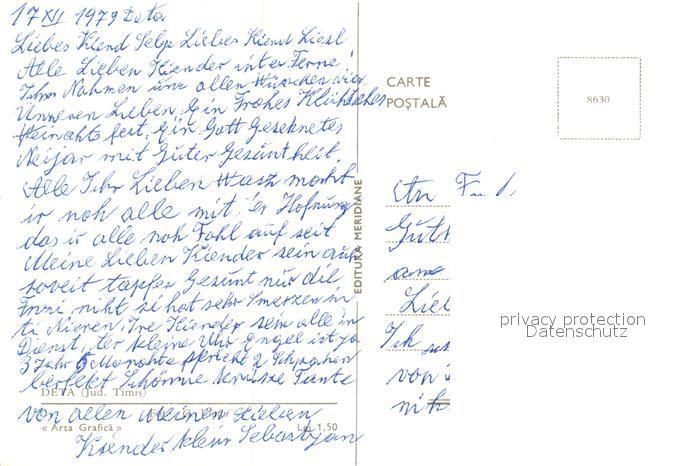 17 XII 1979 Deta
Liebes Kiend Selp Liebes Kiend Liesl
Alle Lieben Kiender in ter Ferne!
Ihre Nahmen unt allen Wünschen wir
Unneren Lieben Ein Frohes Klickliches
Weinachts fest, Ein Gott Geseknetes
Neijar mit Guter Gesuntheit.
Alle Ihr Lieben Wasz macht
ir noh alle mit. er Hofnung
das ir alle noh Fohl auf seit
Meine Lieben Kiender sein auh
soveit tapfer Gesunt nur dil
niht si hat sehr Smerzen in
ti Nieren, Ire Kiender sein alle in
Dienst, ter kleine Engel ist ja
3 Jahr 6 Monahte spricht 2 Schprahen
berfekt Schöne krüsze Tante
von allen meinen Lieben
Kiender klein Sebastyan
DETA (Jud. Timiș)
« Arta Grafică »
Lei 1,50
EDITURA MERIDIANE
CARTE
POȘTALĂ
8630
An
Güt
ame
Liel
Ich
von
nih
privacy protection
Datenschutz